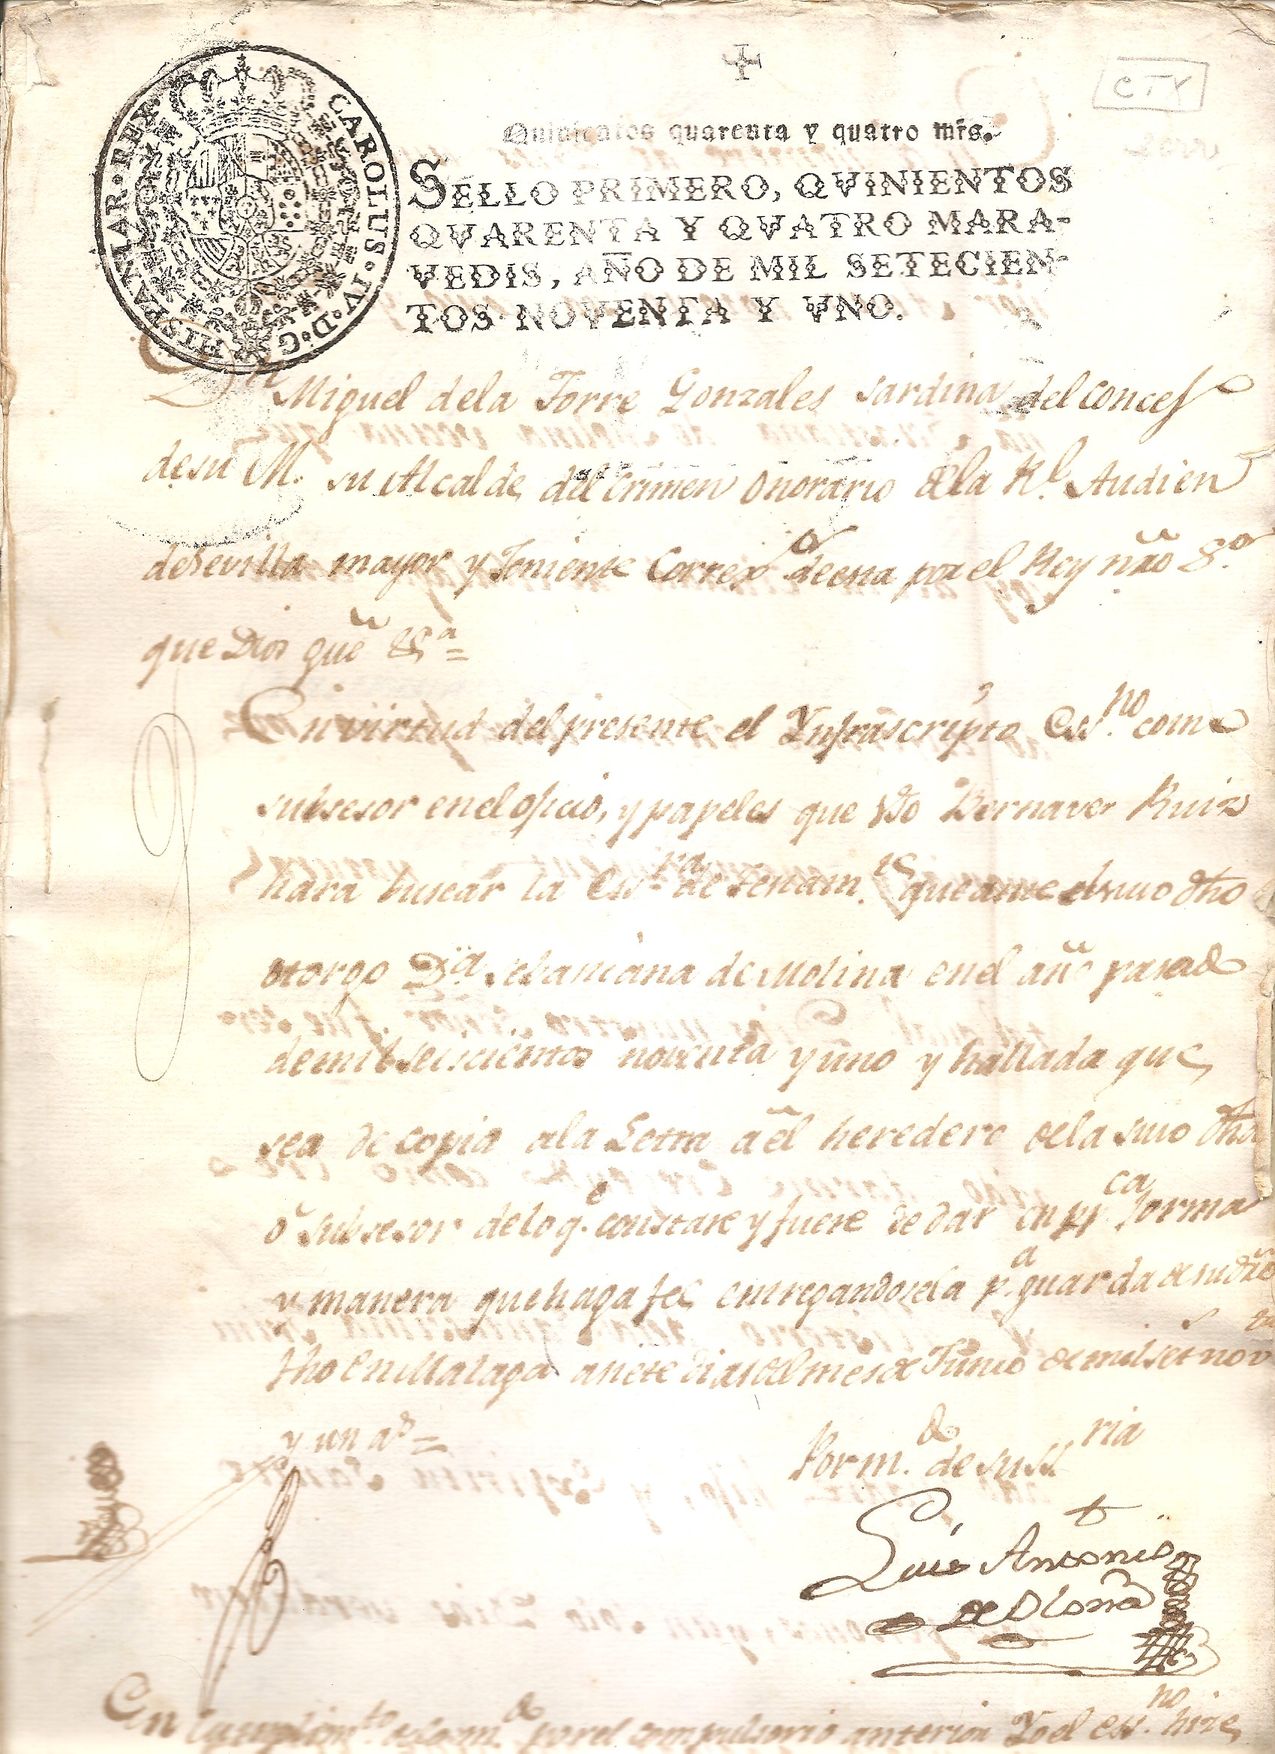 CTY
CAROLUS·IV·D·G·HISPANIAR·REX·
Quinientos quarenta y quatro mrs.
SELLO PRIMERO, QVINIENTOS
QVARENTA Y QVATRO MARA-
VEDIS, AÑO DE MIL SETECIEN-
TOS NOVENTA Y VNO.
Dn Miguel dela Torre Gonzales sardina del concejo
de su M. su Alcalde del Crimen Onorario de la Rl. Audien
de Sevilla mayor y Teniente Corregor de esta por el Rey nro Sor
que Dios gue &a =
En virtud del presente el Ynfrascripto Essno. como
subsesor en el oficio, y papeles que Bernaver Ruiz
hara buscar la Essra. de testamto. que ante el suso dho
otorgo Da. Sebastiana de Molina en el año pasado
de mil seiscientos noventa y uno y hallada que
sea de copia a la Letra a el heredero de la suso dha
o subsesor de lo qe. constare y fuere de dar en pca forma
y manera que haga fee entregandosela pa. guarda de su dro
fho en Malaga a siete dias del mes de Junio de mil sets nov
y un as =
Por mdo. de su Sria
Luis Antonio
de
En cumplimto. por el compulsorio anterior Yo el essno. hize